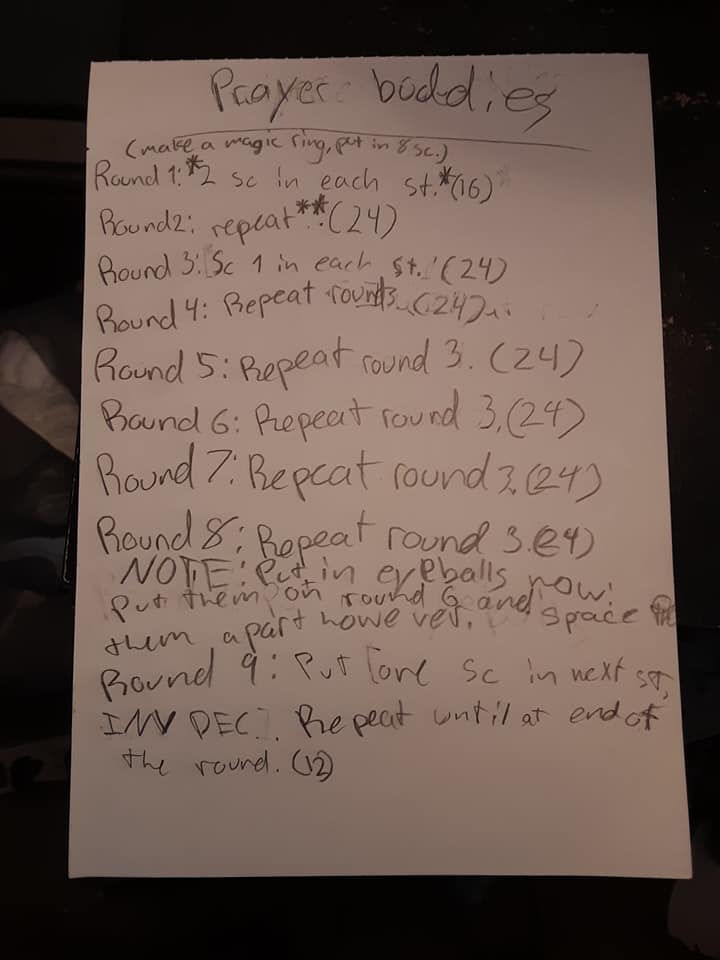 Prayer buddies
(make a magic ring, put in 8 sc.)
Round 1: *2 sc in each st.* (16)
Round 2: repeat **. (24)
Round 3: Sc 1 in each st. (24)
Round 4: Repeat round 3. (24)
Round 5: Repeat round 3. (24)
Round 6: Repeat round 3. (24)
Round 7: Repeat round 3. (24)
Round 8: Repeat round 3. (24)
NOTE: Put in eyeballs now.
Put them on round 6 and space
them apart however.
Round 9: Put one sc in next st,
INV DEC. Repeat until at end of
the round. (12)